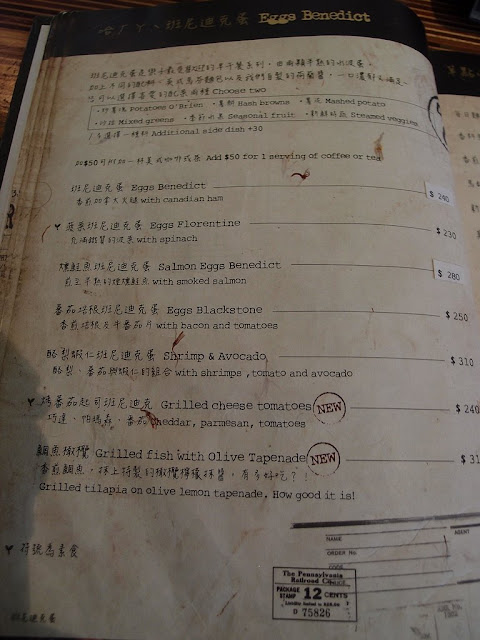 哈丁丫、班尼迪克蛋 Eggs Benedict
班尼迪克蛋是樂子最受歡迎的早午餐系列，由兩顆半熟的水波蛋，
加上不同的配料、英式馬芬麵包以及我們自製的荷蘭醬，一口還
您可以選擇喜愛的配菜兩種 Choose two
Potatoes O'Brien ・薯餅 Hash browns ・薯泥 Mashed potato
Mixed greens ・季節水果 Seasonal fruit ・新鮮時蔬 Steamed veggies
Additional side dish +30
加$50可附加一杯美式咖啡或茶 Add $50 for 1 serving of coffee or tea
班尼迪克蛋 Eggs Benedict $ 240
香煎加拿大火腿 with canadian ham
菠菜班尼迪克蛋 Eggs Florentine $ 230
充滿鐵質的菠菜 with spinach
燻鮭魚班尼迪克蛋 Salmon Eggs Benedict $ 280
煎至半熟的煙燻鮭魚 with smoked salmon
番茄培根班尼迪克蛋 Eggs Blackstone $ 250
香煎培根及牛番茄片 with bacon and tomatoes
酪梨蝦仁班尼迪克蛋 Shrimp & Avocado $ 310
酪梨、番茄與蝦仁的組合 with shrimps ,tomato and avocado
烤番茄起司班尼迪克 Grilled cheese tomatoes NEW $ 240
巧達、帕瑪森、番茄 cheddar, parmesan, tomatoes
鯛魚橄欖 Grilled fish with Olive Tapenade NEW $ 31
香煎鯛魚，抹上特製的橄欖檸檬抹醬，有多好吃？！
Grilled tilapia on olive lemon tapenade. How good it is!
NAME
AGENT
ORDER No.
CODE
符號為素食
The Pennsylvania
Railroad
PACKAGE STAMP 12 CENTS
75826
班尼迪克蛋